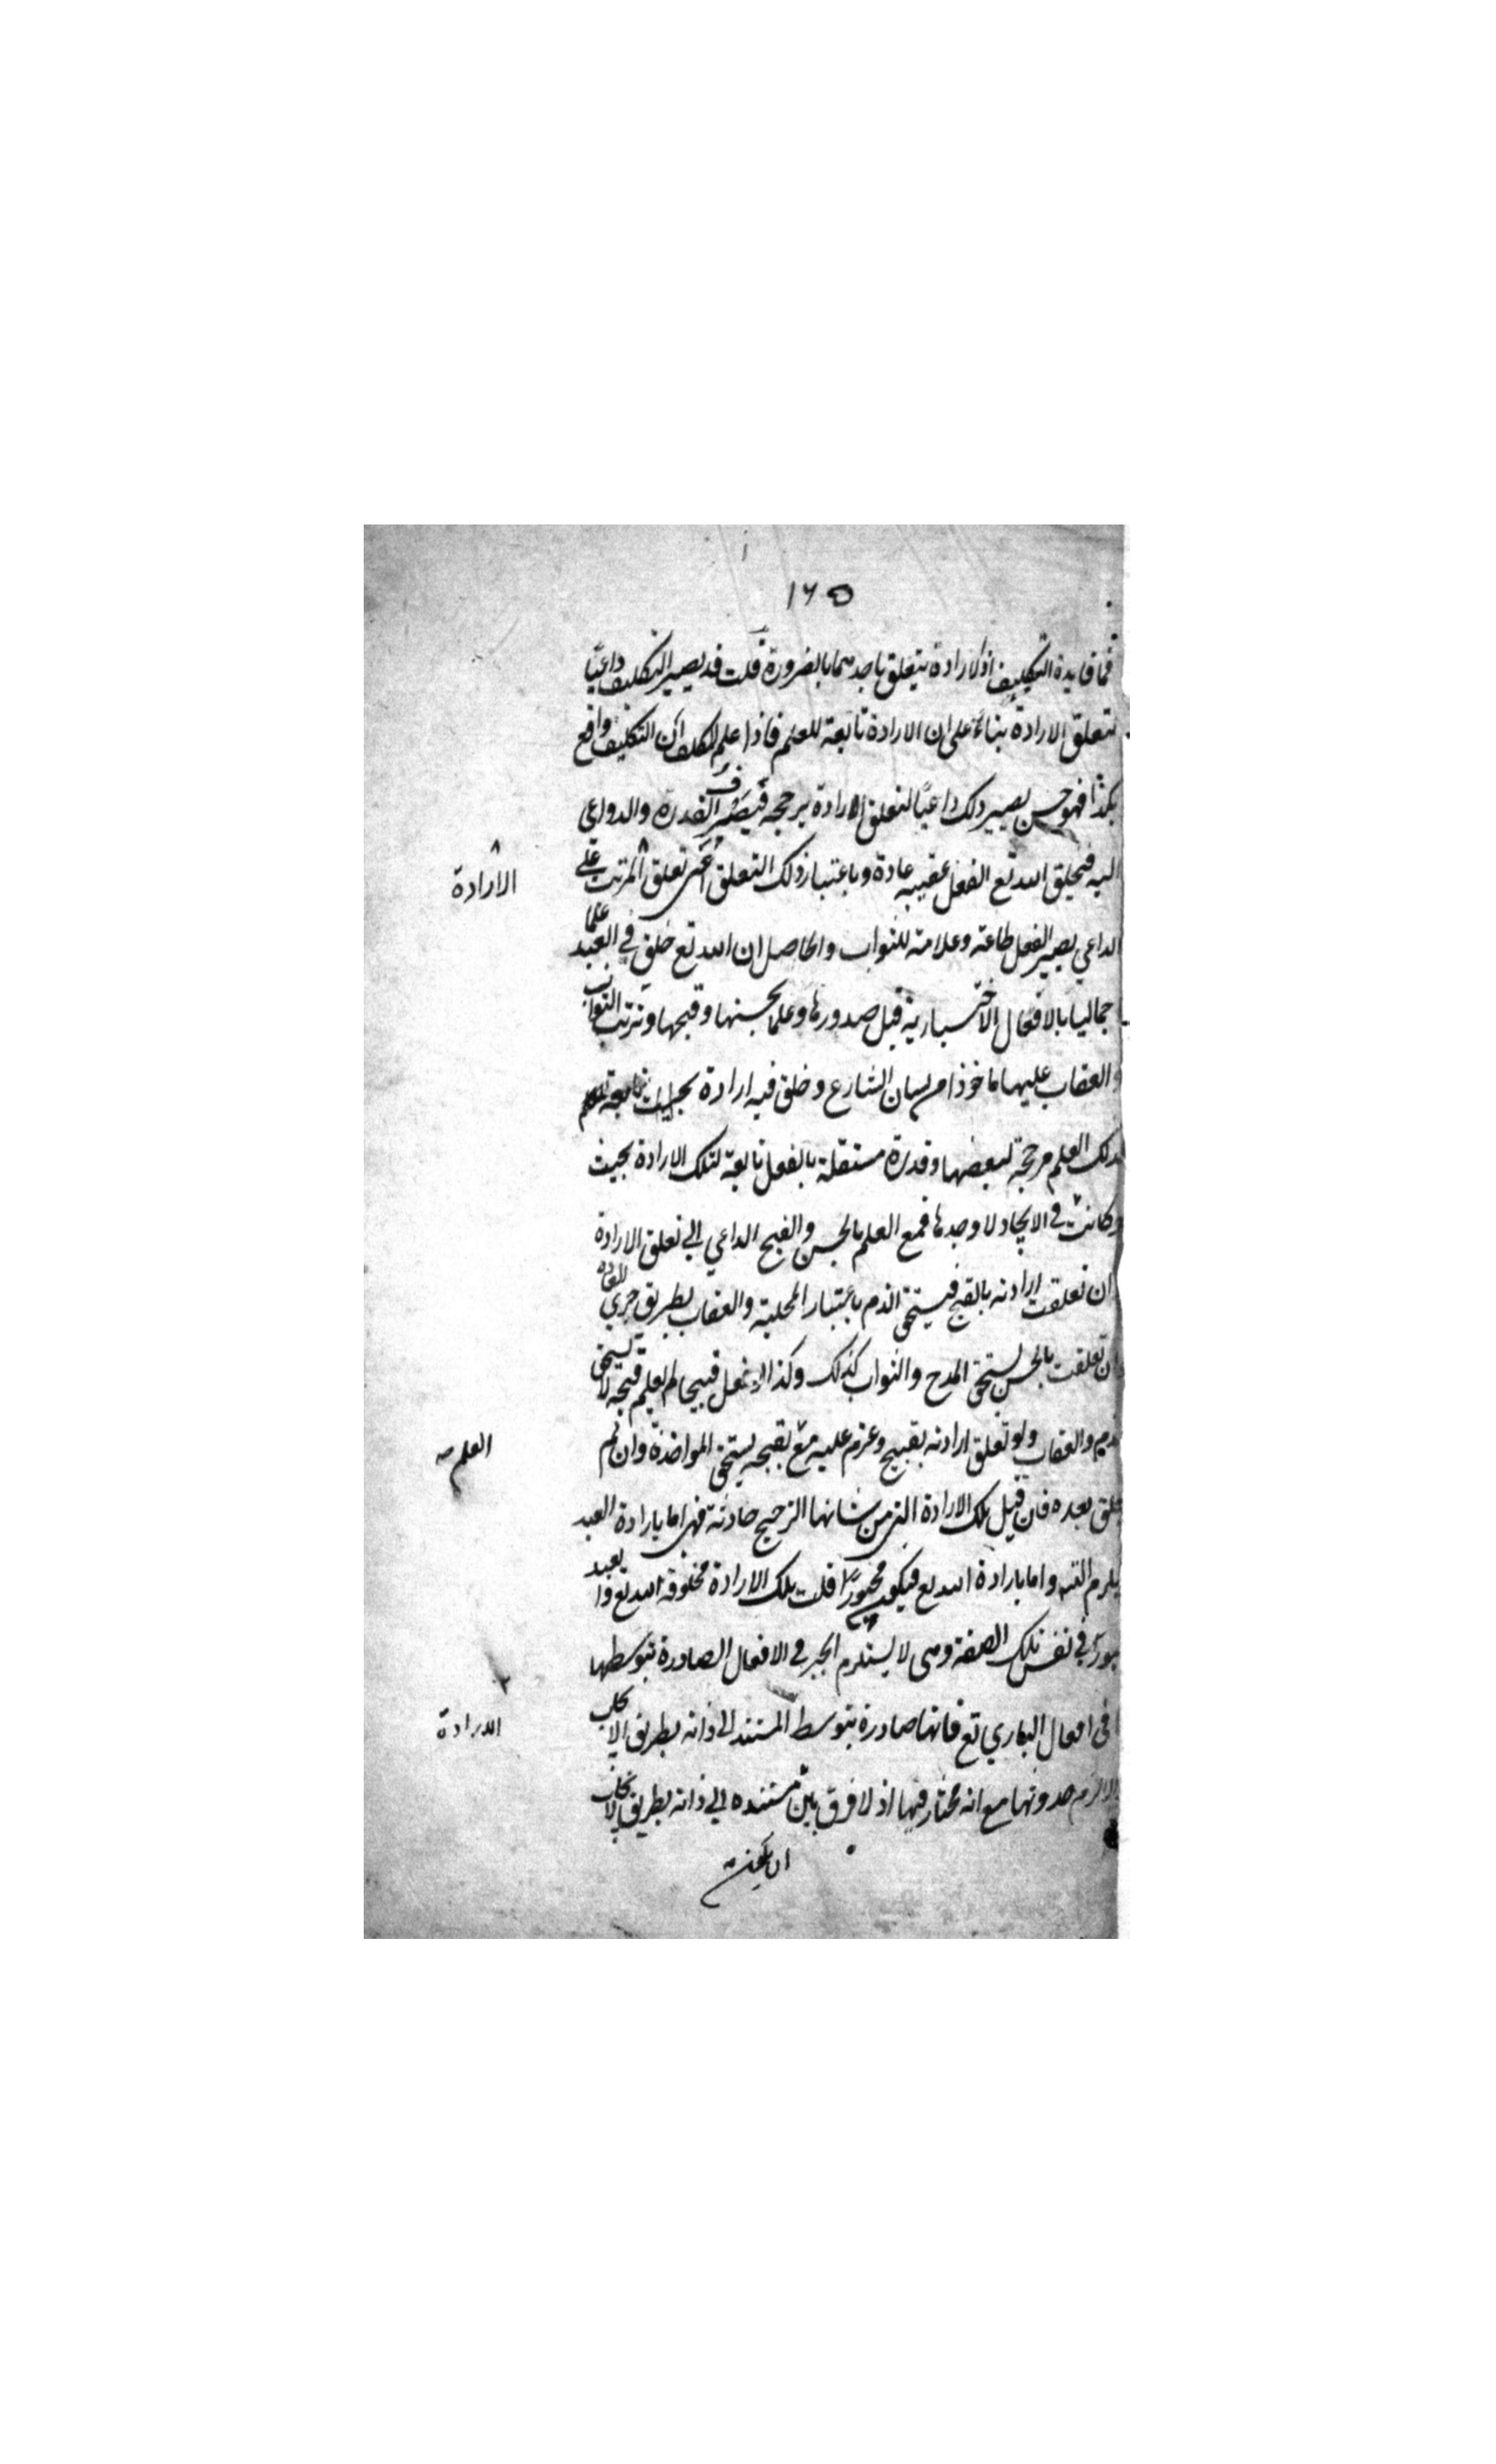 ١٢٥
فما فايدة التكليف اذ الارادة يتعلق باحدهما بالضرورة قلت قد يصير التكليف داعيًا
لتعلق الارادة بناءً على ان الارادة تابعة للعلم فاذا علم المكلف ان التكليف واقع
بكذا فهو حسن يصير ذلك داعيًا لتعلق الارادة يرجحه فيصرف القدرة والدواعي
اليه فيخلق الله تع الفعل عقيبه عادة وباعتبار ذلك التعلق اعنى تعلق المرتب على
الارادة
الداعي يصير الفعل طاعة وعلامة للثواب والحاصل ان الله تع خلق في العبد علما
اجماليا بالافعال الاختيارية قبل صدورها وعلما بحسنها وقبحها وترتب الثواب
والعقاب عليها ماخوذا من لسان الشارع وخلق فيه ارادة بحيث تابعة
لذلك العلم مرجحة لبعضها وقدرة مستقلة بالفعل تابعة لتلك الارادة بحيث
وكانت في الايجاد لاوجدها فمع العلم بالحسن والقبح الداعي الى تعلق الارادة
ان تعلقت ارادته بالقبح فيستحق الذم باعتبار المحلية والعقاب بطريق جري العادة
ان تعلقت بالحسن يستحق المدح والثواب كذلك وكذا فعل قبيحا لم يعلم قبحه لا يستحق
الذم والعقاب ولو تعلق ارادته بقبيح وعزم عليه مع بقبحه يستحق المواخذة وان لم
العلم
يخلق بعده فان قيل تلك الارادة التى من شانها الترجيح حادثة فهى اما بارادة العبد
يلزم التسـ واما بارادة الله تع فيكون مجبورًا قلت تلك الارادة مخلوقة الله تع والعبد
مجبورٌ في نفس تلك الصفة وهى لا يستلزم الجبر في الافعال الصادرة بتوسطها
فى افعال الباري تع فانها صادرة بتوسط المستند الى ذاته بطريق الايجاب
الارادة
والا لزم حدوثها مع انه مختار فيها اذ لا فرق بين مستنده الى ذاته بطريق الايجاب
ان يكون